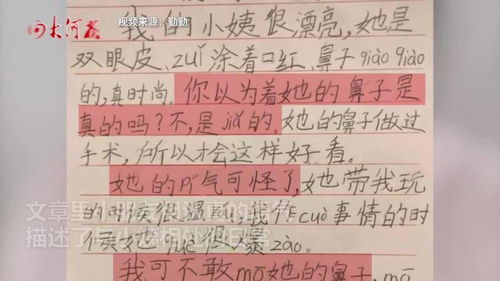 大河报
视频来源：勤勤
我的小姨很漂亮，她是
双眼皮、zuǐ涂着口红、鼻子qiào qiào
的，真时尚。你以为着她的鼻子是
真的吗？不，是jiǎ的。她的鼻子做过
手术，所以才会这样好看。
她的pí气可怪了，她带我玩
的时候很温，我作cuò事情的时
候她què很爆zào。
文章里
描述了
相
日常
我可不敢mō她的鼻子，mō